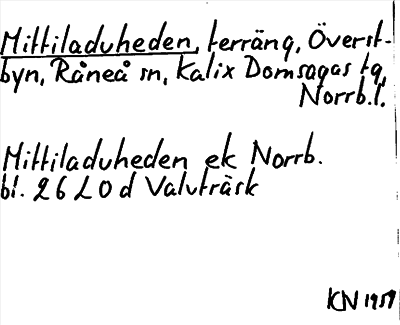 Mittiladuheden, terräng, Överst-
byn, Råneå sn, Kalix Domsagas tg,
Norrb.l.
Mittiladuheden ek Norrb.
bl. 26 L 0 d Valvträsk
KN 1957